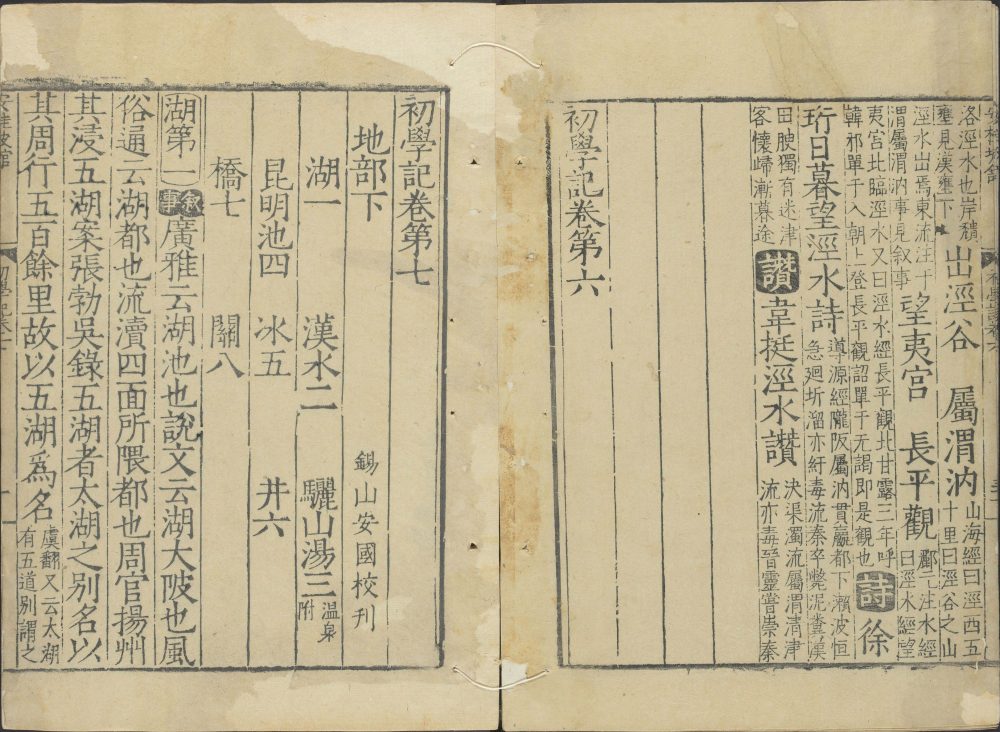 洛涇水也岸穨
壅見漢壅下
出涇谷　屬渭汭
山海經曰涇西五
十里曰涇谷之山
涇水出焉東流注于
渭屬渭汭事見叙事
望夷宮　長平觀
酈元注水經
曰涇水經望
夷宮比臨涇水又曰涇水經長平觀北甘露三年呼
韓邪單于入朝上登長平觀詔單于无謁即是觀也
詩　徐
珩日暮望涇水詩
導源經隴阪屬汭貫嬴都下瀨波恒
急廻圻溜亦紆毒流秦卒斃泥糞漢
田腴獨有迷津
客懷歸漸暮途
讚　韋挺涇水讚
決渠濁流屬渭清津
流亦毒晉靈嘗崇秦
初學記卷第六
初學記卷第七
地部下　錫山安國校刊
湖一　漢水二　驪山湯三 温泉附
昆明池四　冰五　井六
橋七　關八
湖第一 叙事 廣雅云湖池也說文云湖大陂也風
俗通云湖都也流瀆四面所隈都也周官揚州
其浸五湖案張勃吳錄五湖者太湖之别名以
其周行五百餘里故以五湖爲名
虞翻又云太湖
有五道别謂之